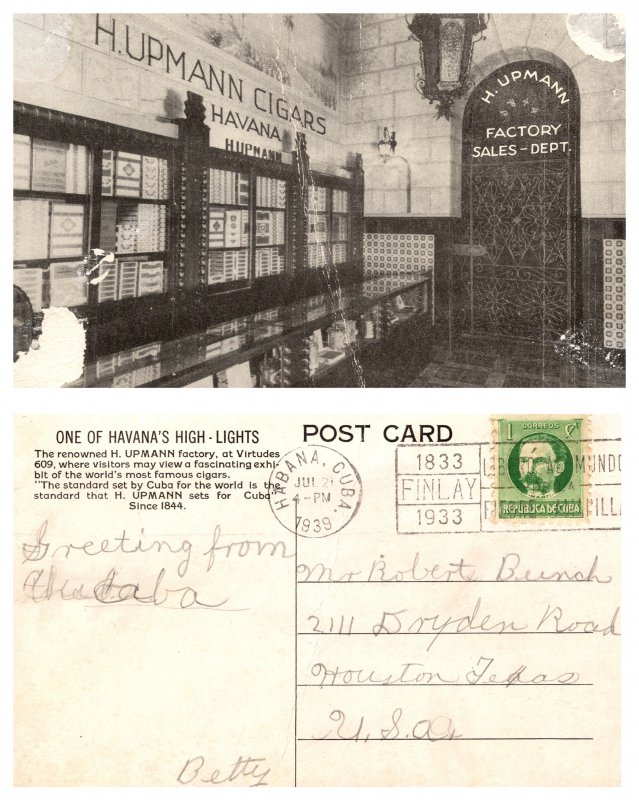 H. UPMANN CIGARS
HAVANA
H. UPMANN
H. UPMANN
FACTORY
SALES-DEPT.
ONE OF HAVANA'S HIGH-LIGHTS
The renowned H. UPMANN factory, at Virtudes
609, where visitors may view a fascinating exhi-
bit of the world's most famous cigars.
"The standard set by Cuba for the world is the
standard that H. UPMANN sets for Cuba"
Since 1844.
POST CARD
HABANA, CUBA.
JUL 21
4-PM
1939
1833
FINLAY
1933
MUNDO
1 CORREOS
REPUBLICA DE CUBA
Greeting from
Betty
Mr Roberts Bunch
2111 Dryden Road
Houston Texas
U.S.A.